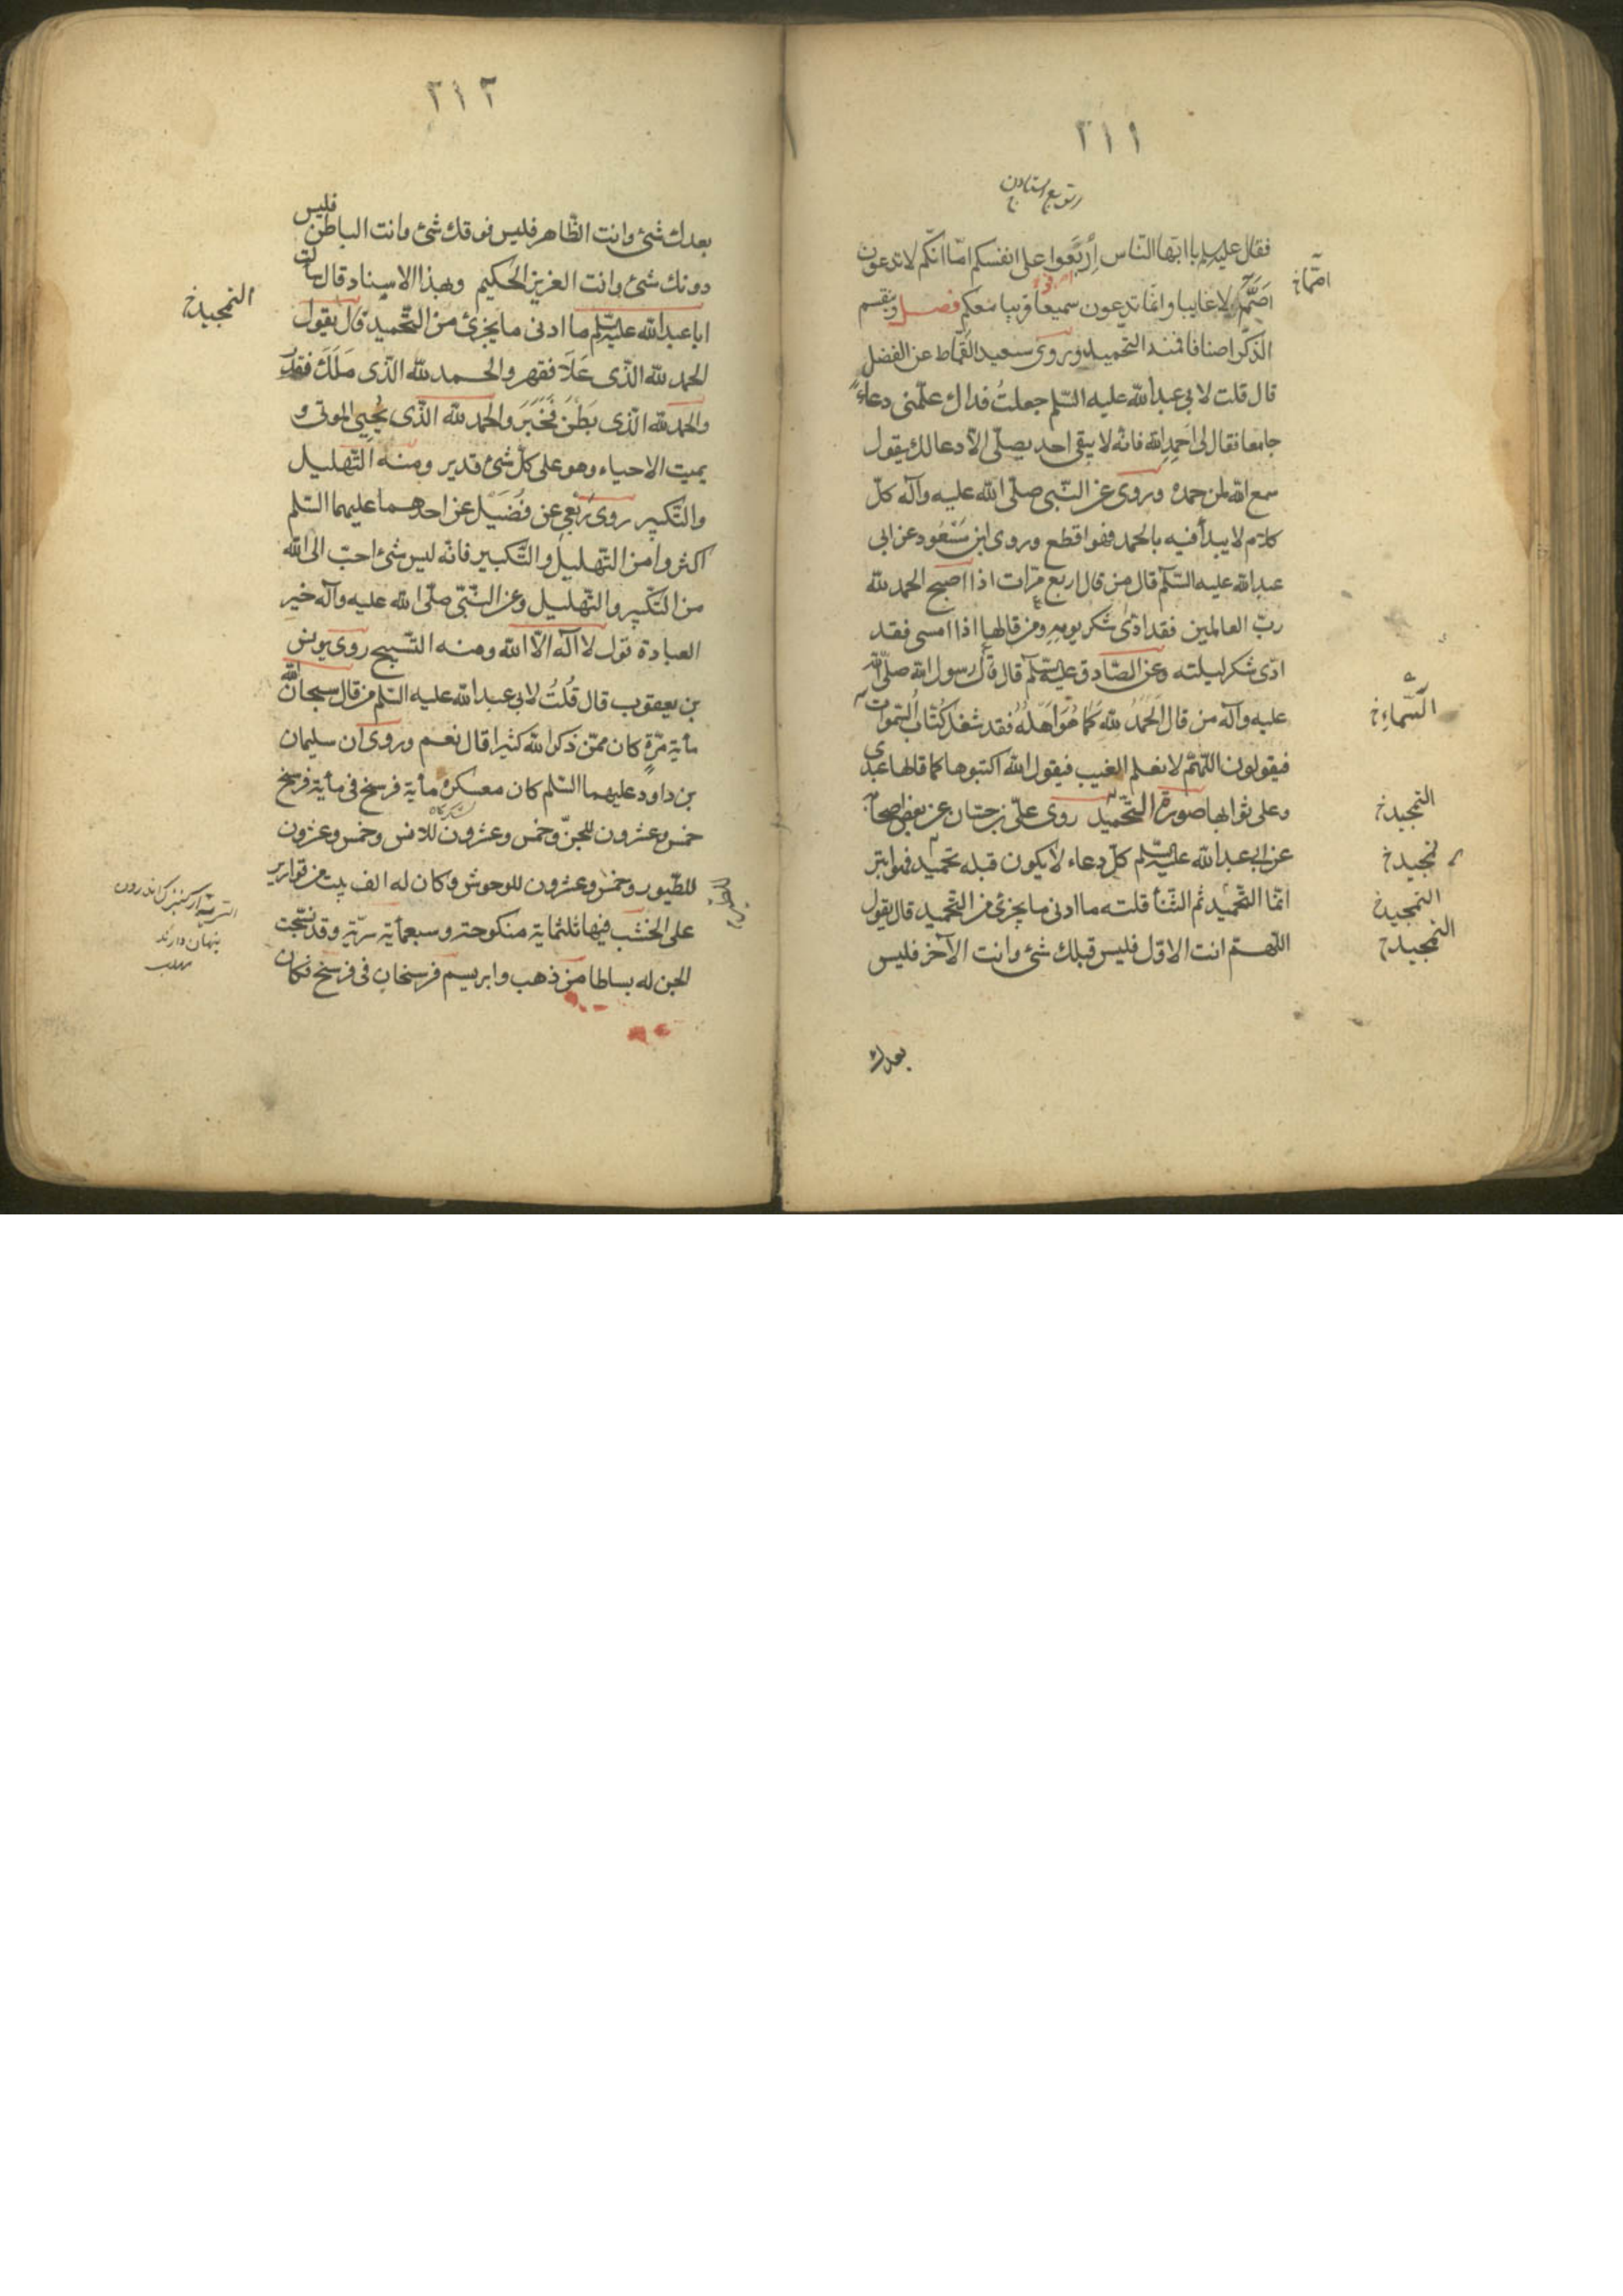 ٢١١
فقال عليه السلم يا ايّها النّاس اِرْبَعوا على انفسكم امّا انّكم لا تدعون
اصمّ ولا غايبا وانّما تدعون سميعا قريبا معكم فصل وينقسم
الذّكر اصنافا فمنه التحميد وروى سعيد القمّاط عن الفضل
قال قلت لابى عبدالله عليه السّلم جعلتُ فداك علّمنى دعاءً
جامعا فقال لى اَحمِدِ الله فانّه لا يبقى احد يصلّى الّا دعا لك يقول
سمع الله لمن حمده وروى عن النّبى صلّى الله عليه وآله كلّ
كلام لا يبدأ فيه بالحمد فهو اقطع وروى ابن مَسْعُود عن ابى
عبدالله عليه السّلم قال من قال اربع مرّات اذا اصبح الحمد لله
ربّ العالمين فقد ادّى شكر يومهِ ومن قالها اذا امسى فقد
ادّى شكر ليلته وعن الصّادق عليه السّلم قال قال رسول الله صلّى الله
عليه وآله من قال الحَمدُ للهِ كَما هُوَ اَهْلُهُ فقد شغل كُتّابَ السّموات
فيقولون اللّهمّ لا نعلم الغيب فيقول الله اكتبوها كما قالها عبدى
وعلى ثوابها صورة التّحميد روى علىّ بن حسّان عن بعض اصحابه
عن ابى عبدالله عليه السّلم كلّ دعاء لا يكون قبله تحميد فهو ابتر
انّما التّحميد ثم الثّناء قلت له ما ادنى ما يجزئ من التّحميد قال يقول
اللّهمّ انت الاوّل فليس قبلك شئ وانت الآخر فليس
بعدك
اصمّا خ
السّماءِ خ
التمجيد خ
تمجيد خ
التمجيد خ
التمجيد خ
٢١٢
بعدك شئ وانت الظّاهر فليس فوقك شئ وانت الباطن فليس
دونك شئ وانت العزيز الحكيم وبهذا الاسناد قال سألت
ابا عبدالله عليه السّلم ما ادنى ما يجزئ من التّحميد قال يقول
الحمد لله الّذى عَلَا فقهر والحمد لله الّذى مَلَكَ فقدر
والحمد لله الّذى بَطَنَ فَخَبَرَ والحمد لله الّذى يُحيِى الموتى و
يميت الاحياء وهو على كلّ شئ قدير ومنه التّهليل
والتّكبير روى رَبْعى عن فُضَيْل عن احدهما عليهما السّلم
اكثروا من التّهليل والتّكبير فانّه ليس شئ احبّ الى الله
من التّكبير والتّهليل وعن النّبىّ صلّى الله عليه وآله خير
العبادة قول لا اله الّا الله ومنه التّسبيح روى يونس
بن يعقوب قال قُلتُ لابى عبدالله عليه السّلم من قال سبحان الله
مأية مرّةٍ كان ممّن ذكر الله كثيرا قال نعم وروى ان سليمان
بن داود عليهما السّلم كان معسكره مأية فرسخ فى مأية فرسخ
خمس وعشرون للجنّ وخمس وعشرون للانس وخمس وعشرون
للطّيور وخمس وعشرون للوحوش وكان له الف بيت من قوارير
على الخشب فيها ثلثماية منكوحة وسبعمأية سرّية وقد نسجت
الجن له بساطا من ذهب وابريسم فرسخان فى فرسخ فكان
التمجيد خ
للطير خ